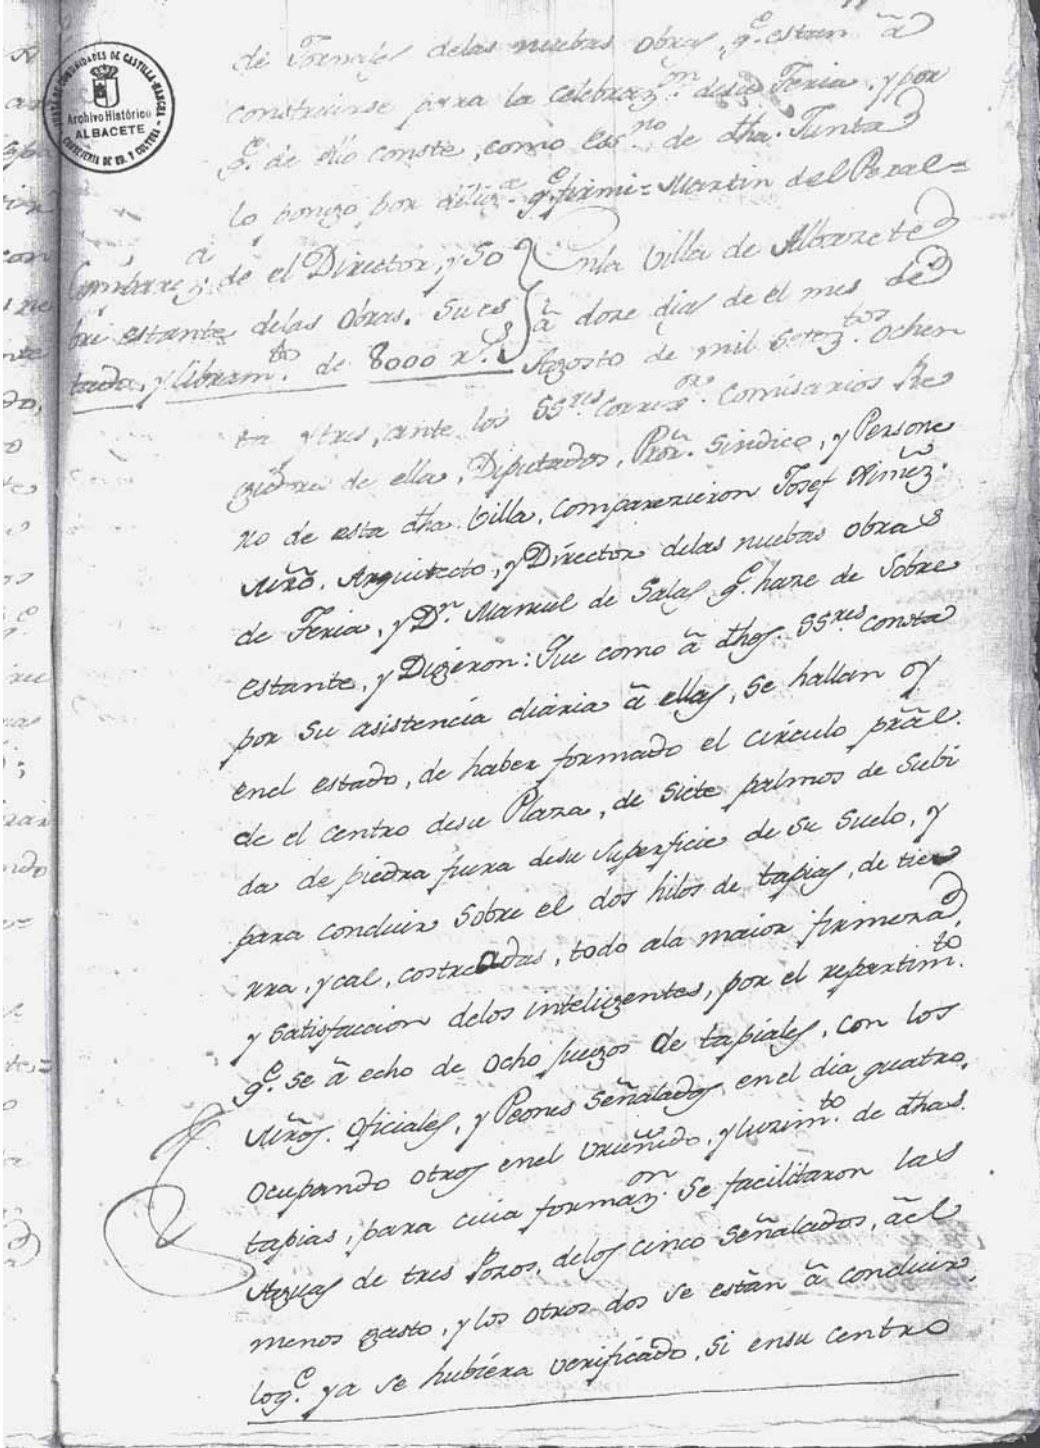 JUNTA DE COMUNIDADES DE CASTILLA-MANCHA
Archivo Histórico
ALBACETE
CONSEJERIA DE ED. Y CULTURA
de Jornales delas nuebas obras, q.e estan â
construirse para la celebraz.on desu Feria, y por
q.e de ello conste, como Ess.no de dha. Junta
lo pongo por dilig.a q.e firmi= Martin del Peral=
Comparez.a de el Director, y So
bre estante delas obras. Su es
tado, y libram.to de 8000 r.s
Enla Villa de Albazete
â doze dias de el mes de
Agosto de mil Setez.tos ochen
ta y tres, ante los SS.res Correx.or Comisarios Re
gidores de ella, Diputados, Pror. Sindico, y Persone
ro de esta dha. Villa, comparezieron Josef Ximiez.
Mro. Arquitecto, y Director delas nuebas obras
de Feria, y D.n Manuel de Salas q.e haze de Sobre
estante, y Digeron: Que como â dhos. SS.res consta
por su asistencia diaria â ellas, se hallan oy
enel estado, de haber formado el circulo pral.
de el centro desu Plaza, de siete palmos de Subi
da de piedra fuera desu superficie de su suelo, y
para concluir sobre el dos hilos de tapias, de tie
rra, y cal, costreadas, todo ala maior firmeza,
y satisfaccion delos inteligentes, por el repartim.to
q.e se â echo de ocho juegos de tapiales, con los
Mros. oficiales, y Peones señalados enel dia quatro,
ocupando otros enel bruñido, y luzim.to de dhas.
tapias, para cuia formaz.on se facilitaron las
Aguas de tres Pozos, delos cinco señalados, âel
menos gasto, y los otros dos se estàn â concluir,
loq.e ya se hubiera verificado, si ensu centro